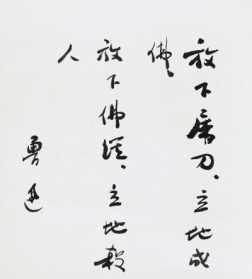 放下屠刀、立地成
佛
放下佛經、立地殺
人
魯迅